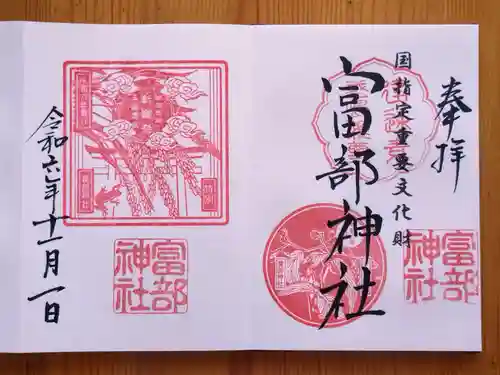 奉拝
国指定重要文化財
富部神社
富部
神社
富部
神社
令和六年十一月一日